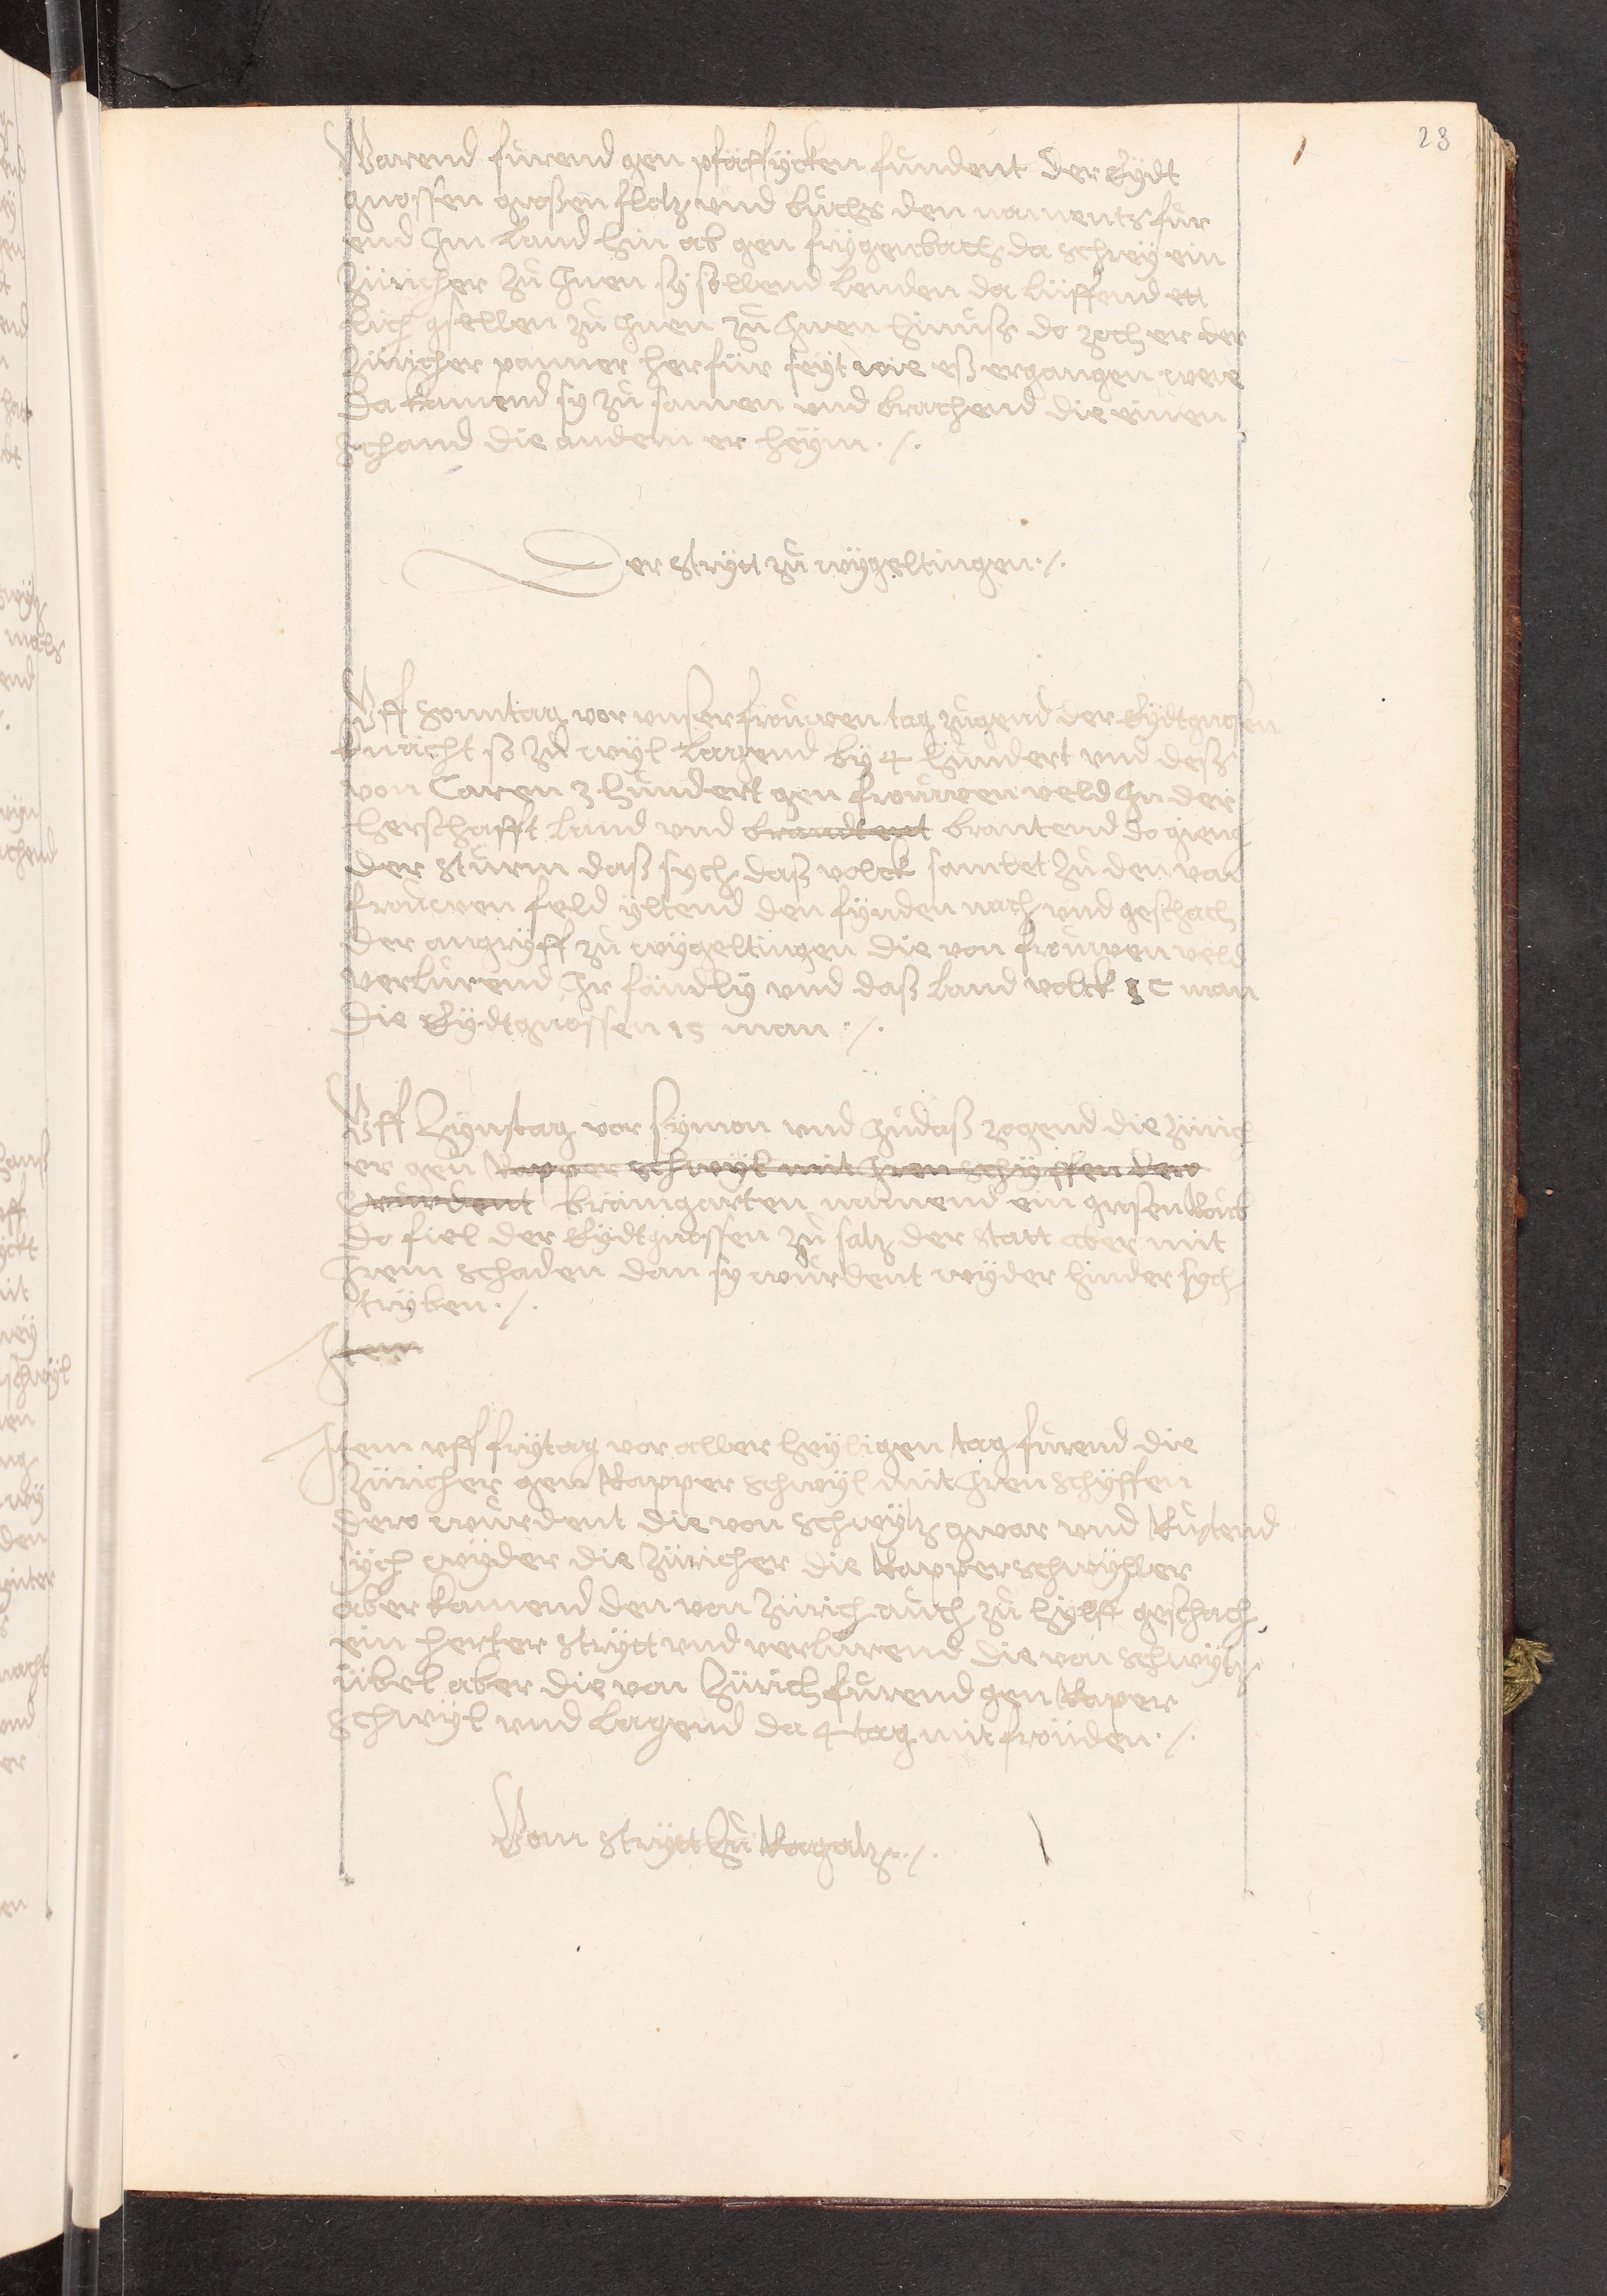 28
Warend fůrend gen pfäffÿcken fundent der Eÿdt
gnossen grosßen flotz und bůchß den naments für
end Im land hin ab gen frÿgenbach da schreÿ ein
Züricher zů Inen sÿ söllend lenden da lüffend ett
lich gsellen zů Inen zů Inen hinuß do zoch er der
Züricher panner herfür seÿt wie eß ergangen were
Da kamend sy zů samen und brachend die einen
schand die andern er heÿm ./.
Der strÿtt zů wÿgeltingen ./.
Uff Sonntag vor unser frouwen tag zugend der Eÿdtgnossen
knächt so zů wÿl lagend bÿ 4 hundert und deß
von Raren 3 hundert gen frouwen veld In der
herschafft land und brandtent brantend do gieng
der sturm daß sÿch daß volck samlet zů den von
frouwen feld ÿltend den fÿnden nach und geschach
der angrÿff zů wÿgeltingen die von frouwen veld
verlurend Ir fändlÿ und daß land volck 1 C man
Die Eÿdtgnossen 15 man ./.
Uff Zÿnstag vor sÿmon und Judaß zogend die Zürich
er gen Rapper schwÿl mit Iren schÿffen dero
wurdent brämgarten namend ein grosen Roub
do fiel der Eÿdtgnossen zů satz der statt aber mit
Irem schaden dan sy wurdent wÿder hinder sÿch
trÿben ./.
Item
Item uff frÿtag vor aller heÿligen tag fůrend die
Züricher gen Rapper schwÿl mit Iren schÿffen
dero wurdent die von Schwÿtz gwar und Rustend
sÿch wÿder die Züricher die Rapperschwÿller
aber kamend den von Zürich auch zů hÿlff geschach
ein herter strÿtt und verlurend die von Schwÿtz
übel aber die von Zürich fůrend gen Raper
schwÿl und lagend da 4 tag mit fröuden ./.
Vom strÿtt Zů Ragatz ./.